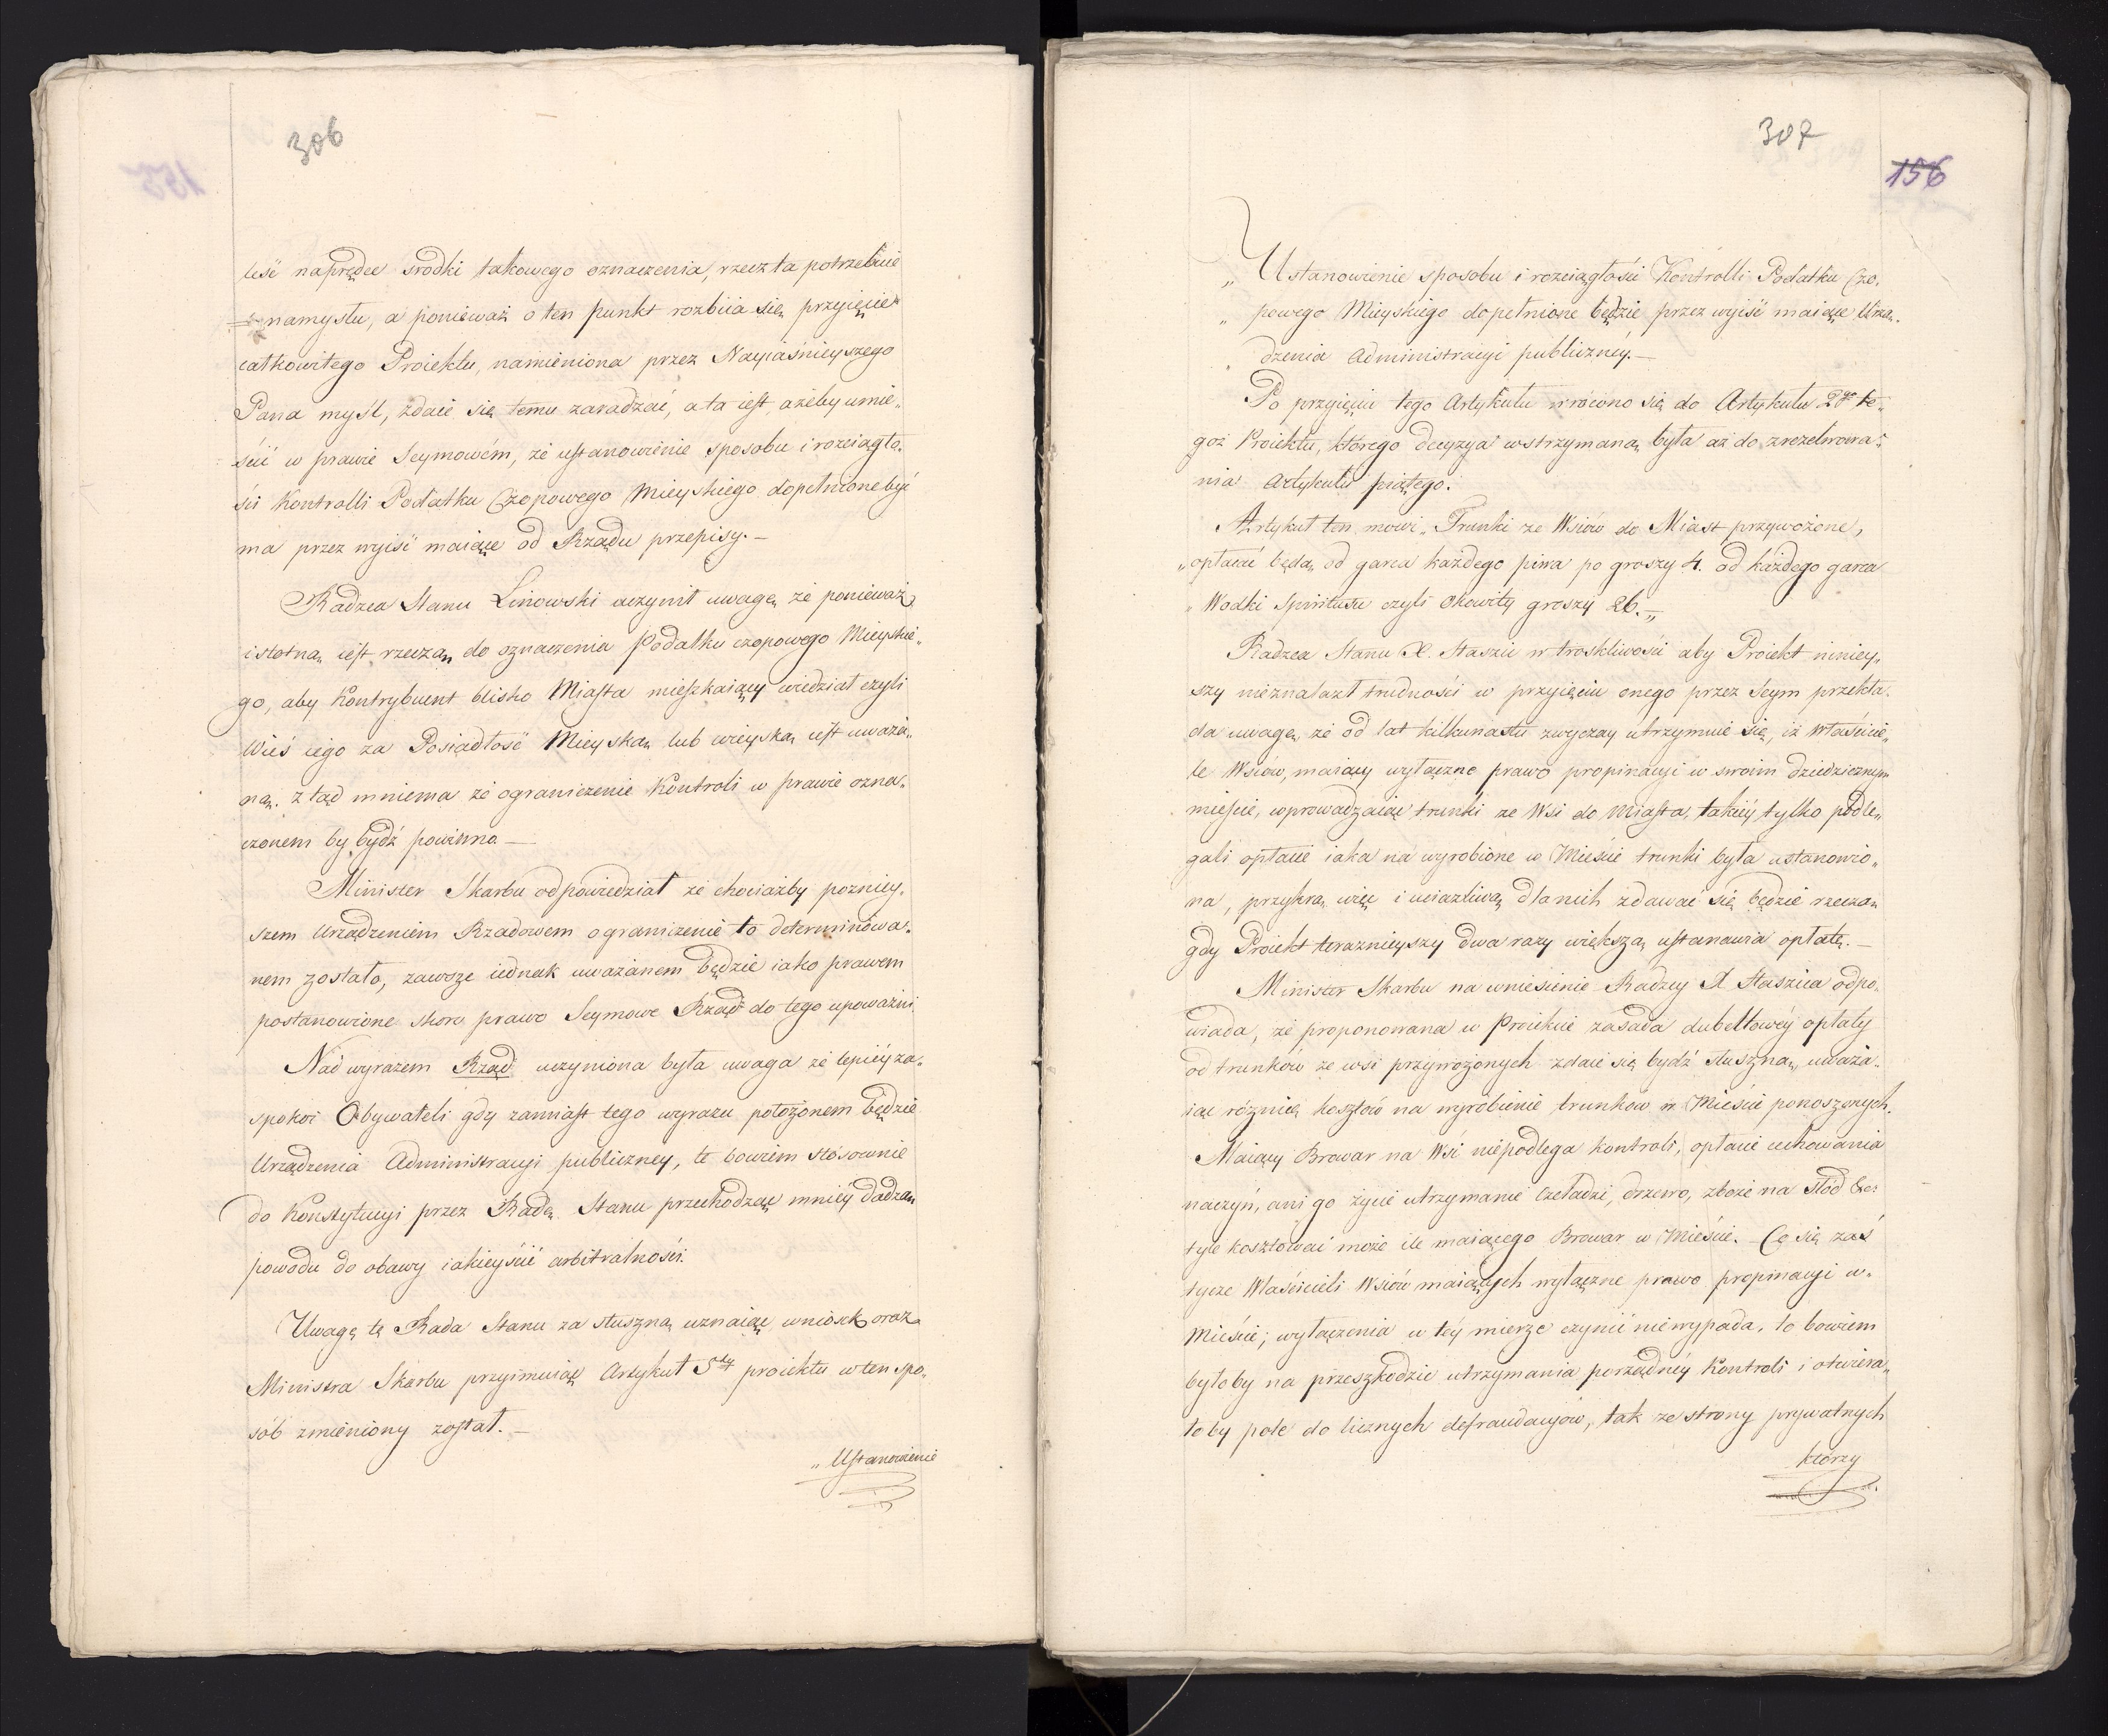 306
leść naprędce srodki takowego oznaczenia, rzecz ta potrzebuie
namysłu, a ponieważ o ten punkt rozbiia się przyięcie
całkowitego Proiektu, namieniona przez Nayiaśnieyszego
Pana myśl, zdaie się temu zaradzać, a ta iest, ażeby umie„
ścić w prawie Seymowém, że ustanowienie sposobu i rozciągło„
ści Kontrolli Podatku Czopowego Mieyskiego dopełnione być
ma przez wyiść maiące od Rządu przepisy. —
Radzca Stanu Linowski uczynił uwagę, że ponieważ
istotną iest rzeczą, do oznaczenia Podatku czopowego Mieyskie„
go, aby Kontrybuent blisko Miasta mieszkaiący wiedział czyli
Wieś iego za Posiadłość Mieyską, lub wieyską iest uważa„
ną. ztąd mniema że ograniczenie Kontroli w prawie ozna„
czonem by bydź powinno. —
Minister Skarbu odpowiedział że chociażby poźniey„
szem Urządzeniem Rządowem ograniczenie to determinowa„
nem zostało, zawsze iednak uważanem będzie iako prawem
postanowione skoro prawo Seymowe Rząd do tego upoważni.
Nad wyrazem Rząd uczyniona była uwaga że lepiéy za„
spokoi Obywateli gdy zamiast tego wyrazu położonem będzie
Urządzenia Administracyi publiczney, te bowiem stósownie
do Konstytucyi przez Radę Stanu przechodzące mniéy dadzą
powodu do obawy iakieyściś arbitralności.
Uwagę tę Rada Stanu za słuszną uznaiąc, wniosek oraz
Ministra Skarbu przyimuiąc Artykuł 5ty proiektu w ten spo„
sób zmieniony został. —
„Ustanowienie
307
156
„Ustanowienie sposobu i rozciągłości Kontrolli Podatku Czo„
„powego Mieyskiego dopełnione będzie przez wyiść maiące Urzą„
dzenia administracyi publicznéy. —
Po przyięciu tego Artykułu wrócono się do Artykułu 2go te„
goż Proiektu, którego decyzya wstrzymaną była aż do zrezolwowa„
nia Artykułu piątego.
Artykuł ten mowi „Trunki ze Wsiów do Miast przywożone,
„opłacać będą, od garca każdego piwa po groszy 4. od każdego garca
„Wodki Spiritusu czyli Okowity groszy 26. —„
Radzca Stanu X. Staszic w troskliwości aby Proiekt niniey„
szy nieznalazł trudności w przyięciu onego przez Seym przekła„
da uwagę, że od lat kilkunastu zwyczay utrzymuie się, iż właścicie„
le Wsiów, maiący wyłączne prawo propinacyi w swoim dziedzicznym
mieście, wprowadzaiąc trunki ze Wsi do Miasta, takiéy tylko podle„
gali opłacie iaka na wyrobione w Mieście trunki była ustanowio„
na, przykrą więc i uciążliwą dla nich zdawać się będzie rzeczą
gdy Proiekt teraznieyszy dwa razy większą ustanawia opłatę. —
Minister Skarbu na wniesienie Radzcy X Staszica odpo„
wiada, że proponowana w Proiekcie zasada dubeltowéy opłaty
od trunków ze wsi przywożonych zdaie się bydź słuszną, uważa„
iąc różnicę kosztów na wyrobienie trunkow w Mieście ponoszonych.
Maiący Browar na Wsi niepodlega Kontroli, opłacie cechowania
naczyń, ani go życie utrzymanie czeladzi, drzewo, zboże na słód &c:
tyle kosztować może ile maiącego Browar w Mieście. — Co się zaś
tycze Właścicieli Wsiów maiących wyłączne prawo propinacyi w„
Mieście; wyłączenia w téy mierze czynić niewypada, to bowiem
byłoby na przeszkodzie utrzymania porządnéy Kontroli i otwiera„
łoby pole do licznych defraudacyów, tak ze strony prywatnych
którzy